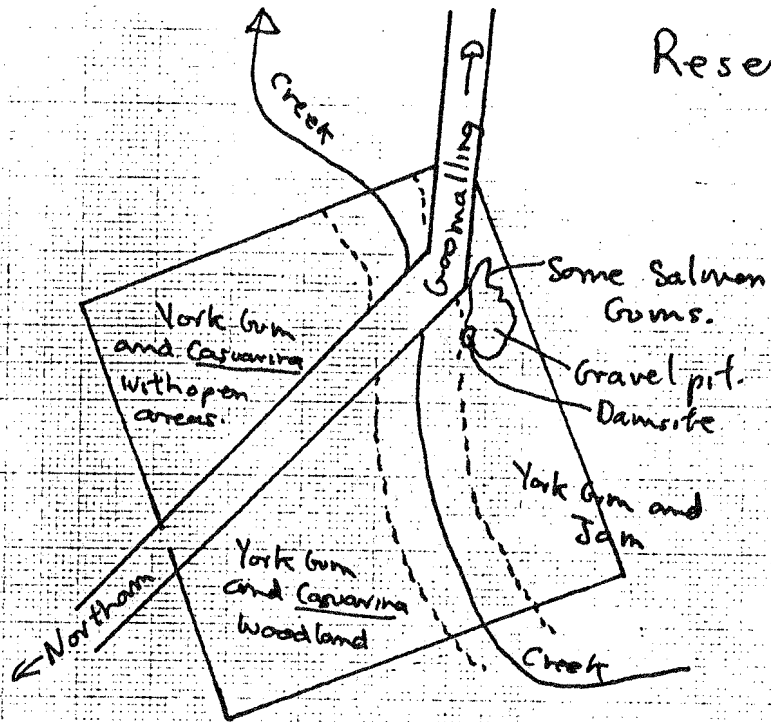 Rese
Creek
Goomalling
Some Salmon
Gums.
Gravel pit.
Damsite
York Gum
and Casuarina
with open
areas.
York Gum and
Jam
York Gum
and Casuarina
Woodland
Northam
Creek